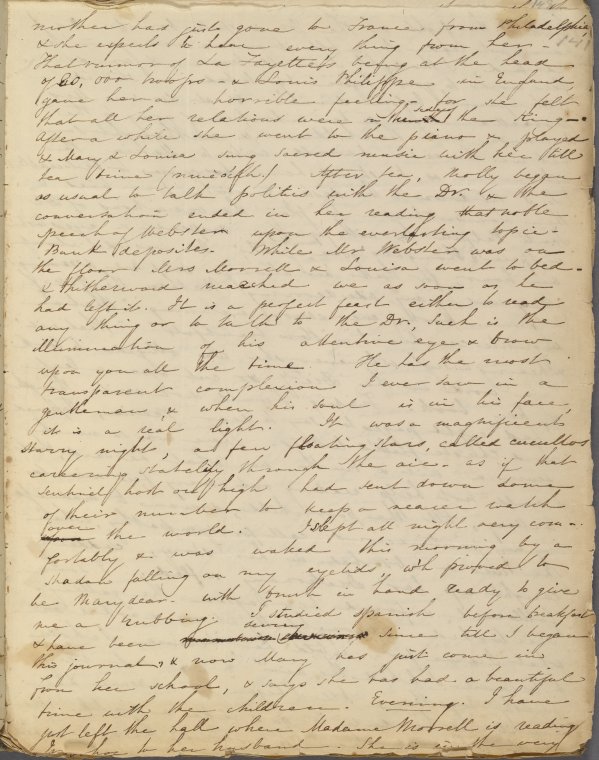 mother has just gone to France from Philadelphia
& she expects to hear every thing from her -
That rumor of La Fayette's being at the head
of 20,000 troops - & Louis Philippe in England,
gave her a horrible feeling - for she felt
that all her relations were near the King -
After a while she went to the piano & played
& Mary & Louisa sung sacred music with her till
tea time After tea, Molly began
as usual to talk politics with the Dr. & the
conversation ended in her reading that noble
speech of Webster upon the everlasting topic -
Bank deposites. While Mr Webster was on
the floor Mrs Morrell & Louisa went to bed -
& thitherward marched we as soon as he
had left it. It is a perfect feast either to read
any thing or to talk to the Dr., such is the
illumination of his attentive eye & brow
upon you all the time. He has the most
transparent complexion I ever saw in a
gentleman, & when his soul is in his face,
it is a real light. It was a magnificent
starry night, a few floating stars, called cucullos
careering stately through the air - as if that
sentinel host on high had sent down some
of their number to keep a nearer watch
over the world. I slept all night very com-
fortably & was waked this morning by a
shadow falling on my eyelids, wh proved to
be Mary dear - with brush in hand ready to give
me a rubbing. I studied Spanish before breakfast
& have been sewing since till I began
this journal, & now Mary has just come in
from her school, & says she has had a beautiful
time with the children. Evening. I have
just left the hall where Madame Morrell is reading
to her husband. She is in the very